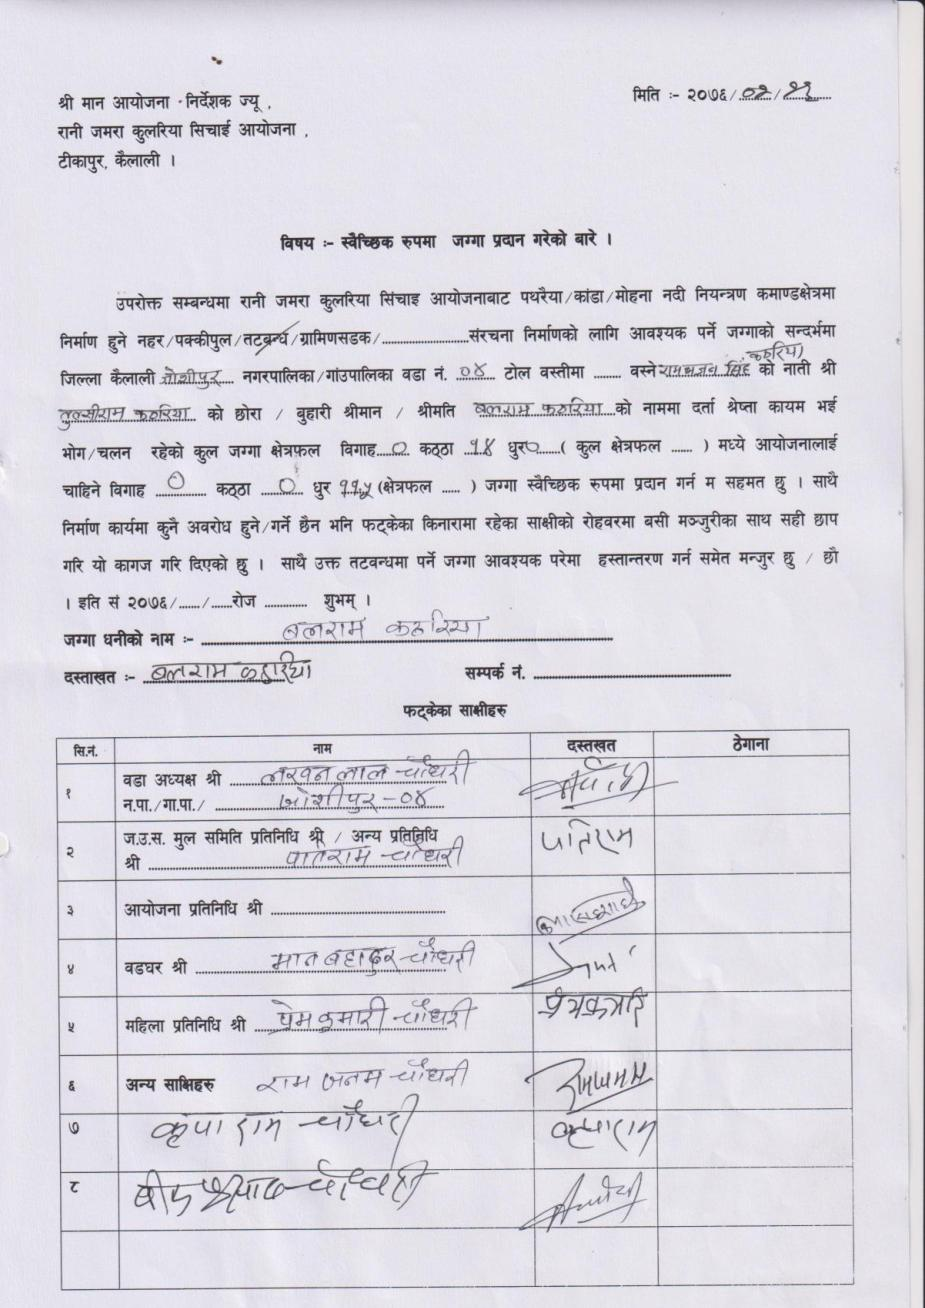 श्री मान आयोजना निर्देशक ज्यू ,
मिति :- २०७६/०२/२३
रानी जमरा कुलरिया सिचाई आयोजना ,
टीकापुर, कैलाली ।
विषय :- स्वैच्छिक रुपमा जग्गा प्रदान गरेको बारे ।
उपरोक्त सम्बन्धमा रानी जमरा कुलरिया सिंचाइ आयोजनाबाट पथरैया/कांडा/मोहना नदी नियन्त्रण कमाण्डक्षेत्रमा
निर्माण हुने नहर/पक्कीपुल/तटबन्ध/ग्रामिणसडक/....................संरचना निर्माणको लागि आवश्यक पर्ने जग्गाको सन्दर्भमा
कठरिया
जिल्ला कैलाली जोशीपुर नगरपालिका/गांउपालिका वडा नं. ०४ टोल वस्तीमा ........ वस्ने सिंह को नाती श्री
तुल्सीराम कठरिया को छोरा / बुहारी श्रीमान / श्रीमति बलराम कठरिया को नाममा दर्ता श्रेष्ता कायम भई
भोग/चलन रहेको कुल जग्गा क्षेत्रफल विगाह ० कठ्ठा १४ धुर ० ( कुल क्षेत्रफल ...... ) मध्ये आयोजनालाई
चाहिने विगाह ० कठ्ठा ० धुर (क्षेत्रफल ..... ) जग्गा स्वैच्छिक रुपमा प्रदान गर्न म सहमत छु । साथै
निर्माण कार्यमा कुनै अवरोध हुने/गर्ने छैन भनि फट्केका किनारामा रहेका साक्षीको रोहवरमा बसी मञ्जुरीका साथ सही छाप
गरि यो कागज गरि दिएको छु । साथै उक्त तटवन्धमा पर्ने जग्गा आवश्यक परेमा हस्तान्तरण गर्न समेत मन्जुर छु / छौ
। इति सं २०७६/....../......रोज ............ शुभम् ।
जग्गा धनीको नाम :- बलराम कठरिया
दस्ताखत :- बलराम कठरिया सम्पर्क नं. ..............................
फट्केका साक्षीहरु
सि.नं. नाम दस्तखत ठेगाना
१ वडा अध्यक्ष श्री लखन लाल चौधरी
न.पा./गा.पा./ जोशीपुर-०४
२ ज.उ.स. मुल समिति प्रतिनिधि श्री / अन्य प्रतिनिधि
श्री पतिराम चौधरी पतिराम
३ आयोजना प्रतिनिधि श्री ..............................
४ वडघर श्री मान बहादुर चौधरी
५ महिला प्रतिनिधि श्री प्रेम कुमारी चौधरी
६ अन्य साक्षिहरु राम जनम चौधरी
७ कृपा राम चौधरी कृपाराम
८ चौधरी